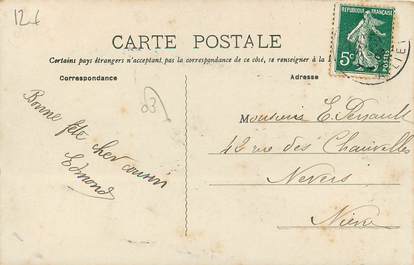 12f
RÉPUBLIQUE FRANÇAISE
5c
POSTES
CARTE POSTALE
Certains pays étrangers n'acceptant, pas la correspondance de ce côté, se renseigner à la
Correspondance
Adresse
03
Bonne fête cher cousin
Edmond
Monsieur E. Perrault
42 rue des Chauvelles
Nevers
Nièvre